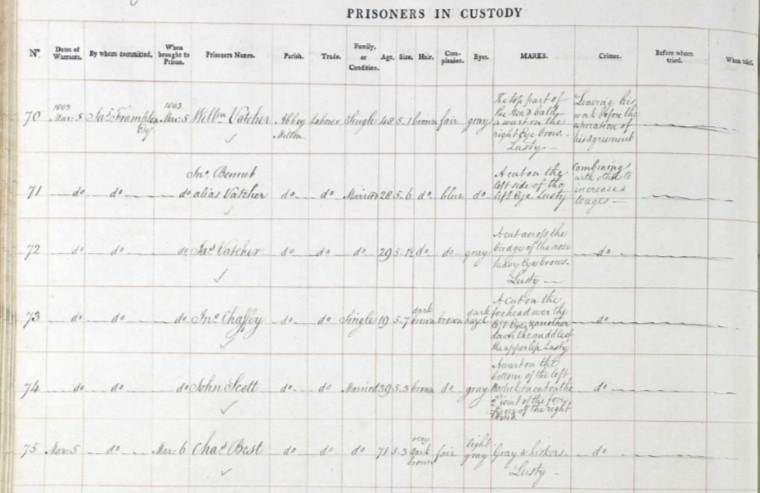 PRISONERS IN CUSTODY
No. Dates of Warrants. By whom committed. When brought to Prison. Prisoners Names. Parish. Trade. Family, or Condition. Age. Size. Hair. Complexion. Eyes. MARKS. Crimes. Before whom tried. When tried.
70 1803 Mar. 5 Jas. Frampton Esqr. 1803 Mar. 5 Willm. Vatcher Abbey Milton Labourer Single 48 5.1 brown fair gray
The top part of
his Head bald
a wart on the
right Eye brow.
Lusty
Leaving his
work before the
expiration of
his agreement
71 do do do Jno. Bennet
alias Vatcher do do Married 28 5.6 do. blue do
A cut on the
left side of the
left Eye Lusty
Combining
with others to
increase
wages
72 do do do Jas. Vatcher do do do 29 5. do. do gray
A cut across the
bridge of the nose
heavy Eye brows.
Lusty
do
73 do do do Jno. Chaffey do do Single 19 5.7 dark brown brown dark hazel
A cut on the
forehead over the
left Eye & another
down the middle of
the upper lip Lusty
do
74 do do do John Scott do do Married 39 5.3 brown do gray
A wart on the
of the left
a cut on the
joint of the fore
finger of the right
Hand
do
75 Mar. 5 do Mar. 6 Chas. Best do do do 71 5.3 very dark brown fair light gray
Gray whiskers
Lusty
do